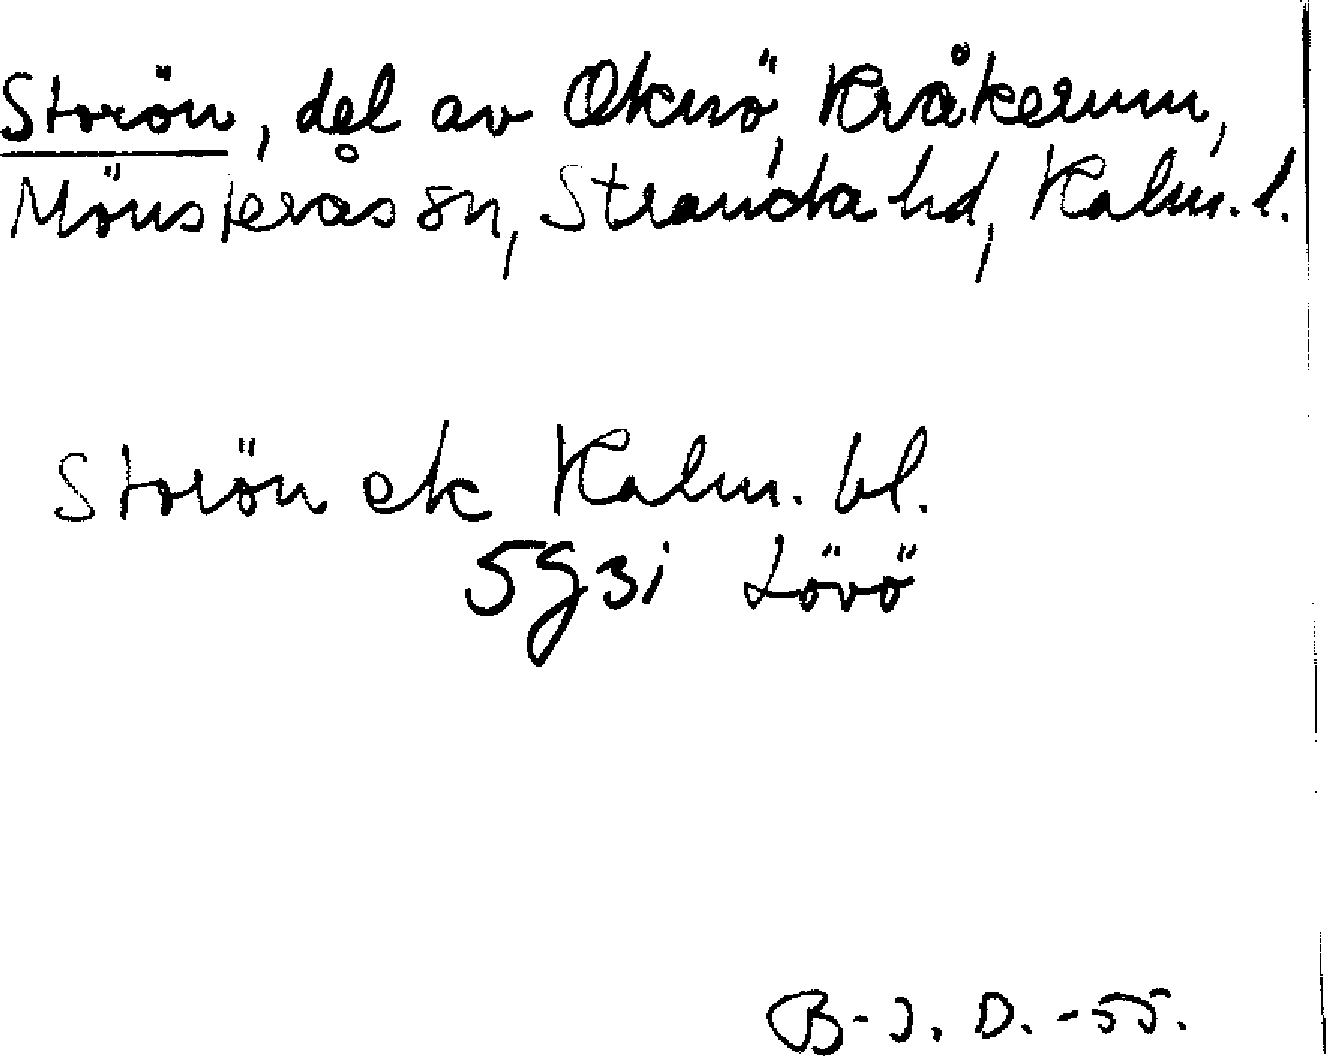 Storön, del av Oknö, Kråkerum,
Mönsterås sn, Stranda hd, Kalm. l.
Storön ek Kalm. bl.
5g3i Lövö
B-J. D. -55.